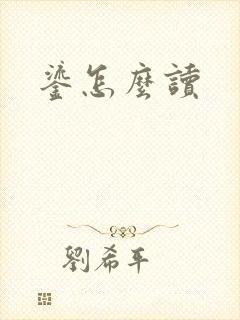 鎏怎麼讀
劉希平